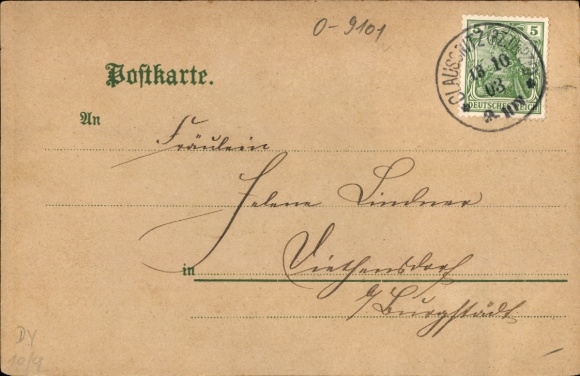 O-9101
5
CLAUSSNITZ
15 10
03
DEUTSCHES REICH
Postkarte.
An
Fräulein
Helene Lindner
in Diethensdorf
b/Burgstädt
DY
10/4